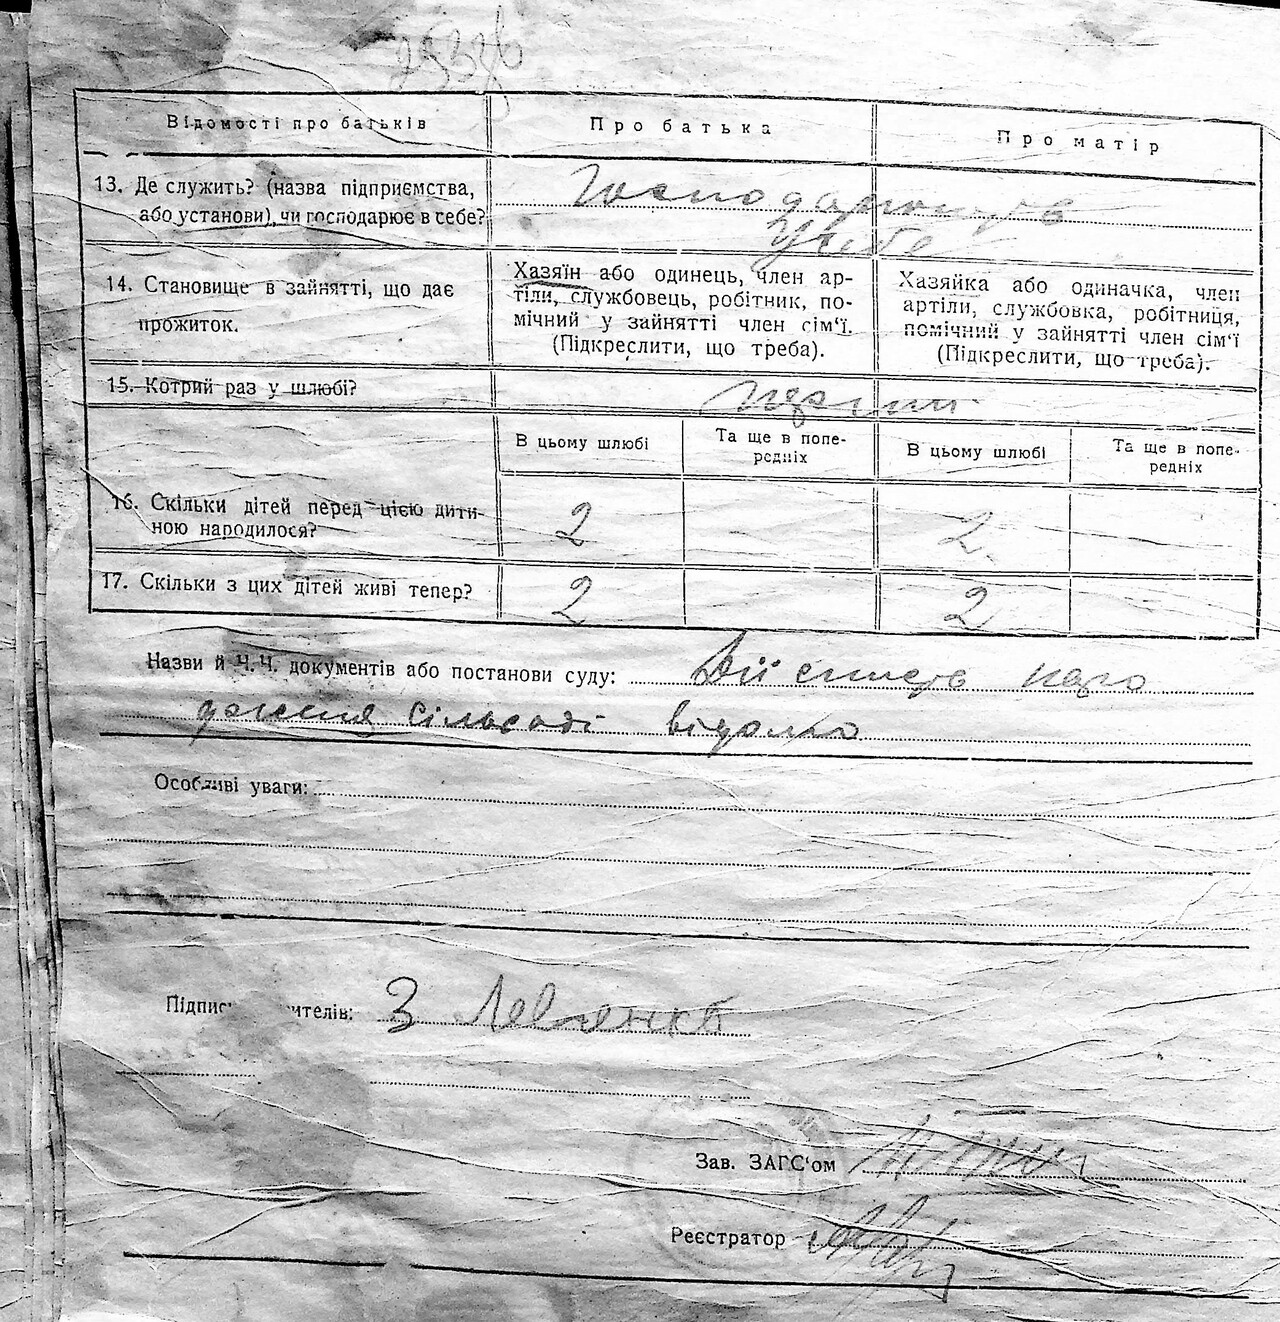 Відомості про батьків
Про батька
Про матір
13. Де служить? (назва підприємства,
або установи), чи господарює в себе?
Господарює
14. Становище в зайнятті, що дає
прожиток.
Хазяїн або одинець, член ар-
тіли, службовець, робітник, по-
мічний у зайнятті член сім‘ї.
(Підкреслити, що треба).
Хазяйка або одиначка, член
артіли, службовка, робітниця,
помічний у зайнятті член сім‘ї
(Підкреслити, що треба).
15. Котрий раз у шлюбі?
В цьому шлюбі
Та ще в попе-
редніх
В цьому шлюбі
Та ще в попе-
редніх
16. Скільки дітей перед цією дити-
ною народилося?
2
2
17. Скільки з цих дітей живі тепер?
2
2
Назви й Ч.Ч. документів або постанови суду: Дійсність наро
дження сільраді відома
Особливі уваги:
З
Зав. ЗАГС‘ом
Реєстратор